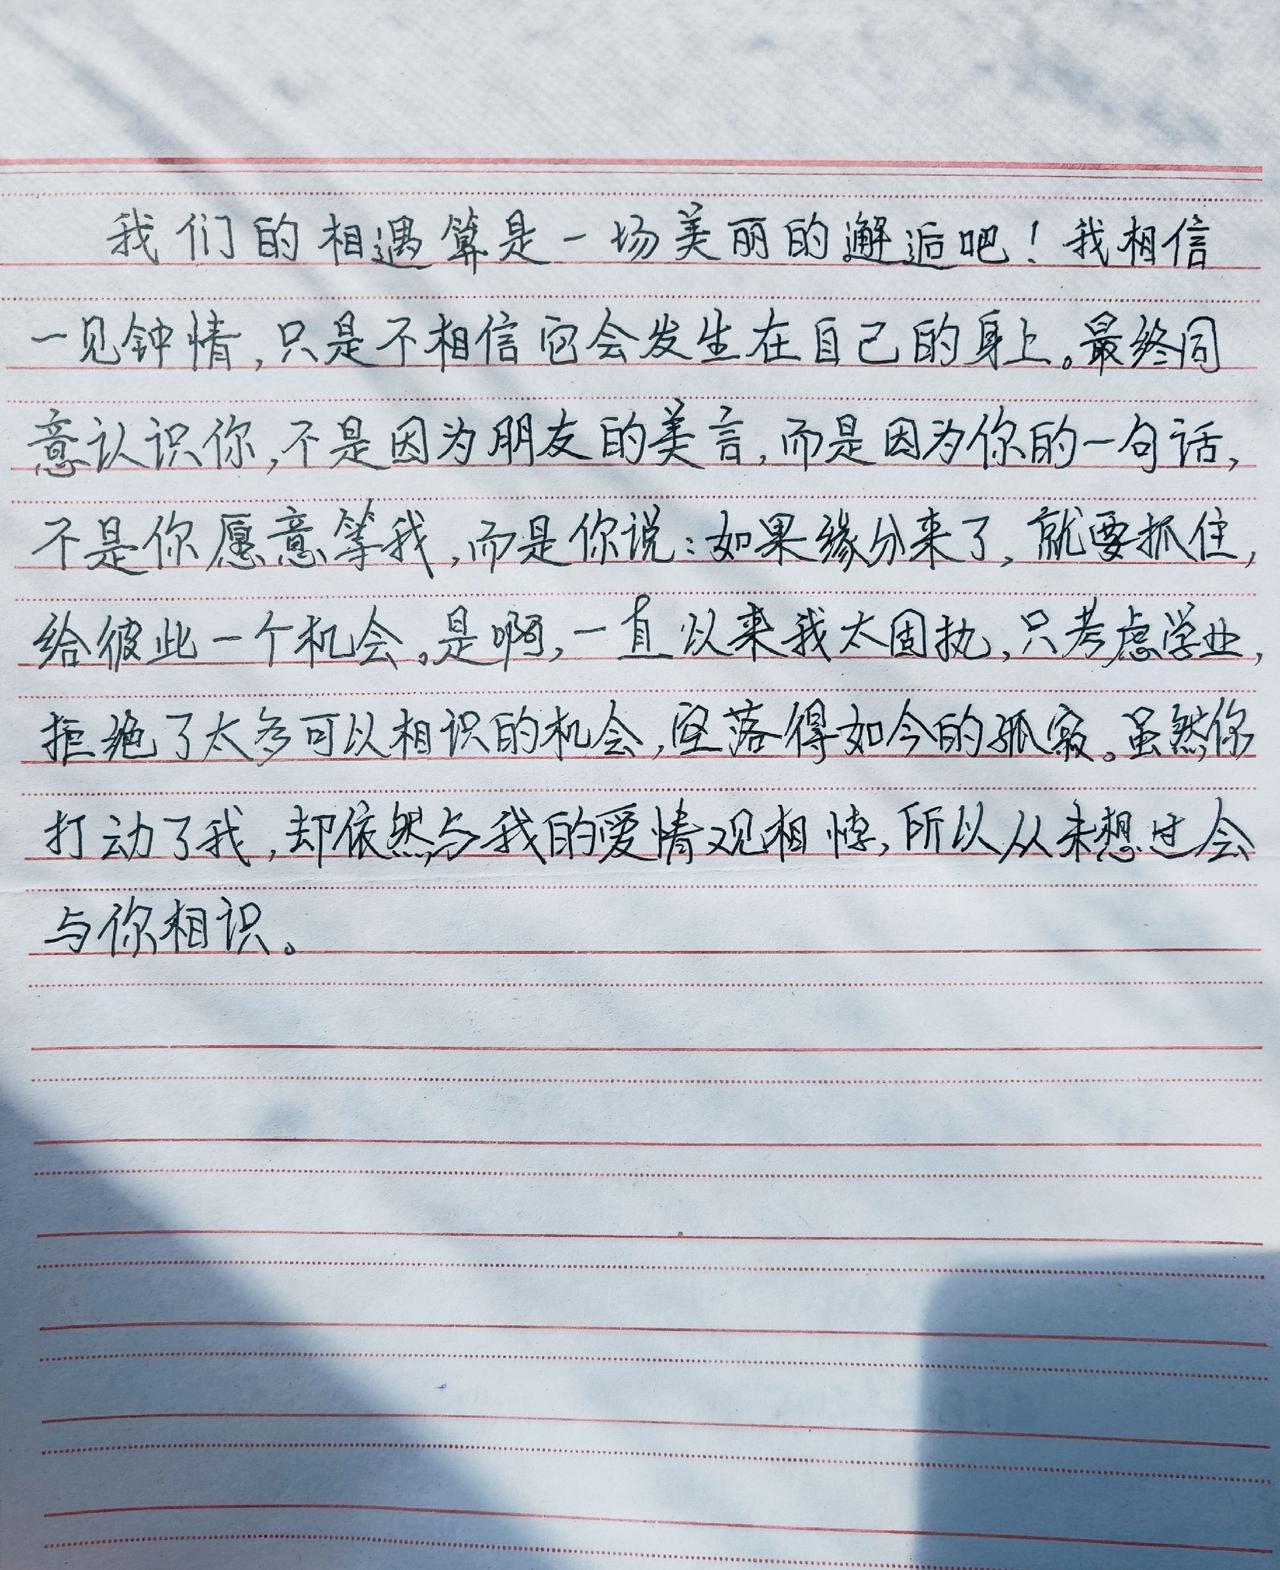 我们的相遇算是一场美丽的邂逅吧！我相信
一见钟情，只是不相信它会发生在自己的身上。最终同
意认识你，不是因为朋友的美言，而是因为你的一句话，
不是你愿意等我，而是你说：如果缘分来了，就要抓住，
给彼此一个机会。是啊，一直以来我太固执，只考虑学业，
拒绝了太多可以相识的机会，空落得如今的孤寂。虽然你
打动了我，却依然与我的爱情观相悖，所以从未想过会
与你相识。